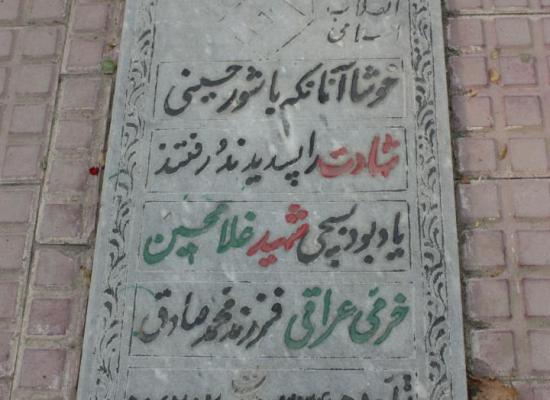 انقلاب
اسلامی
خوشا آنانکه با شور حسینی
شهادت را پسندیدند و رفتند
یادبود بسیجی شهید غلامحسین
خرمی عراقی فرزند محمدصادق